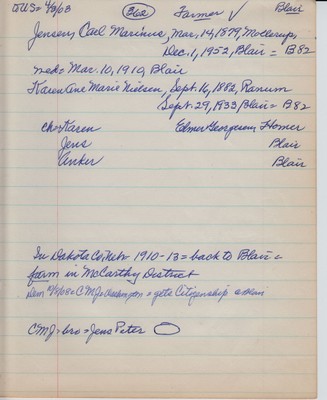 QUS= 4/3/03 362 Farmer ✓ Blair
Jensen, Carl Marinus, Mar. 14, 1879, Mollerup,
Dec. 1, 1952, Blair = B82
wed = Mar. 10, 1910, Blair
Karen Ane Marie Nielsen, Sept. 16, 1882, Ranum
Sept. 29, 1933 Blair = B82
ch = Karen Elmer Georgesen, Homer
Jens Blair
Anker Blair
In Dakota Co. Neb = 1910-13 = back to Blair =
farm in McCarthy District
CMJ = Washington = gets Citizenship
CMJ = bro = Jens Peter